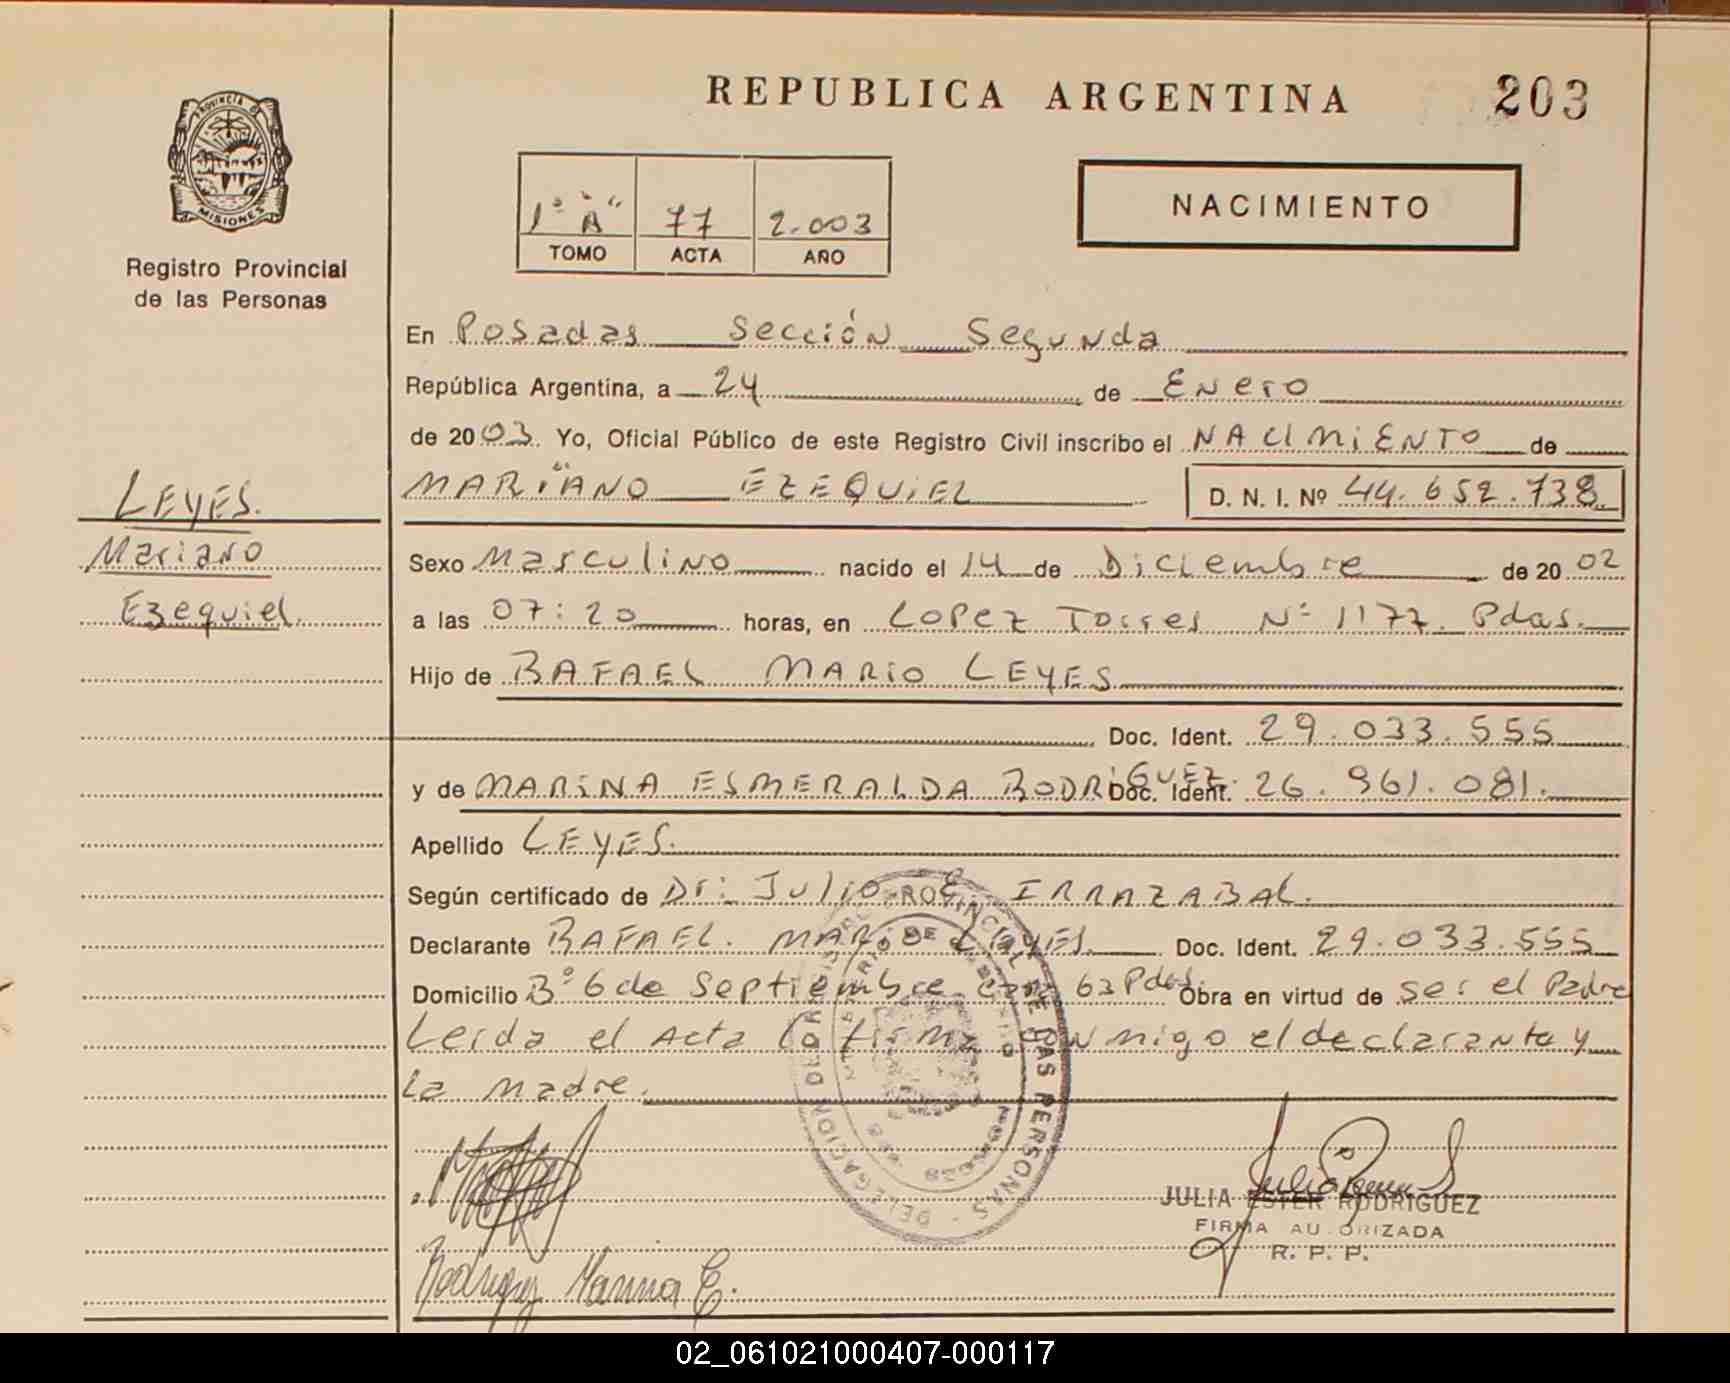 REPUBLICA ARGENTINA
203
PROVINCIA DE
MISIONES
Registro Provincial
de las Personas
1º "A" 77 2.003
TOMO ACTA AÑO
NACIMIENTO
En Posadas Sección Segunda
República Argentina, a 24 de Enero
de 2003. Yo, Oficial Público de este Registro Civil inscribo el NACIMIENTO de
MARIANO EZEQUIEL D. N. I. Nº 44.652.738
LEYES.
Mariano
Ezequiel.
Sexo Masculino nacido el 14 de Diciembre de 2002
a las 07:20 horas, en LOPEZ Torres Nº 1177. Pdas.
Hijo de RAFAEL MARIO LEYES
Doc. Ident. 29.033.555
y de MARINA ESMERALDA RODRIGUEZ. Doc. Ident. 26.961.081.
Apellido LEYES.
Según certificado de Dr: Julio E. IRRAZABAL.
Declarante RAFAEL. MARIO LEYES. Doc. Ident. 29.033.555
Domicilio Bº 6 de Septiembre 63 Pdas. Obra en virtud de ser el Padre
Leida el Acta la firma conmigo el declarante y
La madre.
DELEGACION DEL REGISTRO PROVINCIAL DE LAS PERSONAS
JULIA ESTER RODRIGUEZ
FIRMA AUTORIZADA
R. P. P.
Rodriguez Marina E.
02_061021000407-000117